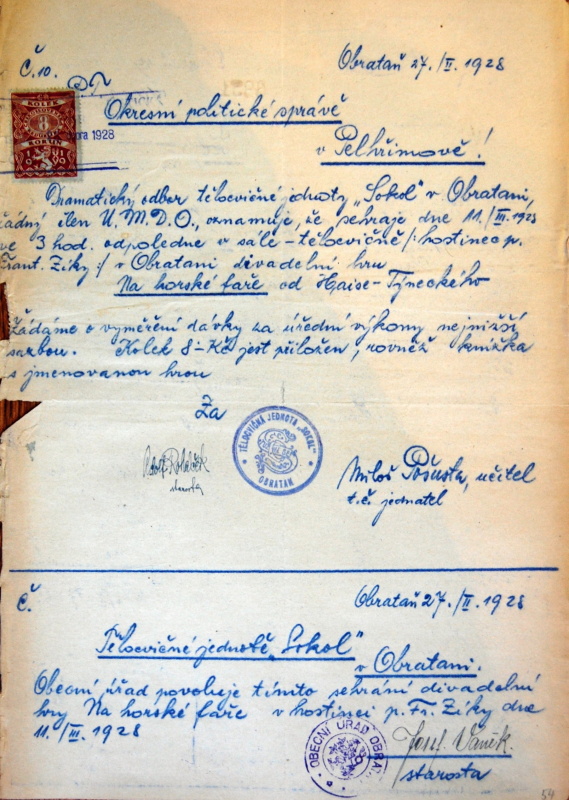 Č. 10.
Obrataň 27./II. 1928
KOLEK
8
KORUN
února 1928
Okresní politické správě
v Pelhřimově!
Dramatický odbor tělocvičné jednoty „Sokol“ v Obratani,
řádný člen Ú.M.D.O., oznamuje, že sehraje dne 11./III. 1928
ve 3 hod. odpoledne v sále – tělocvičně /: hostinec p.
Frant. Ziky :/ v Obratani divadelní hru
Na horské faře od Haise-Týneckého
Žádáme o vyměření dávky za úřední výkony nejnižší
sazbou. Kolek 8-Kč jest přiložen, rovněž knížka
s jmenovanou hrou
Za
TĚLOCVIČNÁ JEDNOTA „SOKOL“
OBRATAŇ
Adolf
starosta
Miloš Pošusta, učitel
t.č. jednatel
Č.
Obrataň 27./II. 1928
Tělocvičné jednotě „Sokol“
v Obratani.
Obecní úřad povoluje tímto sehrání divadelní
hry Na horské faře v hostinci p. Fr. Ziky dne
11./III. 1928
OBECNÍ ÚŘAD OBRA
Josef Vaněk.
starosta
54